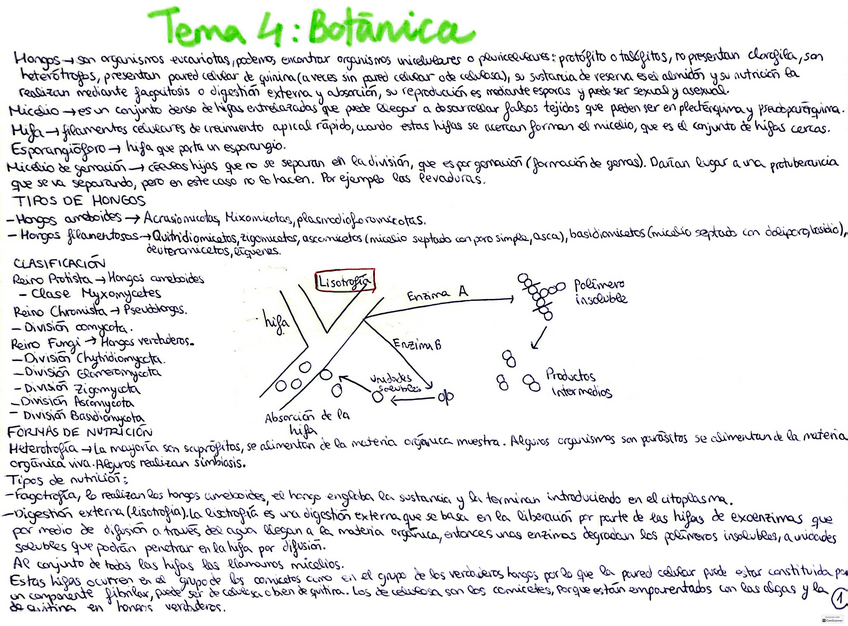 Tema 4: Botánica
Hongos → son organismos eucariotas, podemos encontrar organismos unicelulares o pluricelulares: protófito o talófitos, no presentan clorofila, son
heterótrofos, presentan pared celular de quinina (a veces sin pared celular o de celulosa), su sustancia de reserva es el almidón y su nutrición la
realizan mediante fagocitosis o digestión externa y absorción, su reproducción es mediante esporas y puede ser sexual y asexual.
Micelio → es un conjunto denso de hifas entrelazadas que puede llegar a desarrollar falsos tejidos que pueden ser en plecténquima y pseudoparénquima.
Hifa → filamentos celulares de crecimiento apical rápido, cuando estas hifas se acercan forman el micelio, que es el conjunto de hifas cercas.
Esporangióforo → hifa que porta un esporangio.
Micelio de gemación → células hijas que no se separan en la división, que es por gemación (formación de gemas). Darían lugar a una protuberancia
que se va separando, pero en este caso no lo hacen. Por ejemplo las levaduras.
TIPOS DE HONGOS
- Hongos ameboides → Acrasiomicotas, Mixomicotas, plasmodioforomicotas.
- Hongos filamentosos → Quitridiomicetos, zigomicetos, ascomicetos (micelio septado con poro simple, asca), basidiomicetos (micelio septado con doliporo, basidio),
deuteromicetos, líquenes.
CLASIFICACIÓN
Reino Protista → Hongos ameboides
- Clase Myxomycetes
Reino Chromista → Pseudohongos.
- División oomycota.
Reino Fungi → Hongos verdaderos.
- División Chytridiomycota.
- División Glomeromycota
- División Zigomycota
- División Ascomycota
- División Basidiomycota
Lisotrofía
hifa
Enzima A
Polímero
insoluble
Enzima B
unidades
solubles
Productos
intermedios
Absorción de la
hifa
FORMAS DE NUTRICIÓN
Heterotrofía → La mayoría son saprófitos, se alimentan de la materia orgánica muestra. Algunos organismos son parásitos se alimentan de la materia
orgánica viva. Algunos realizan simbiosis.
Tipos de nutrición:
- Fagotrofía, lo realizan los hongos ameboides, el hongo engloba la sustancia y la terminan introduciendo en el citoplasma.
- Digestión externa (lisotrofía). La lisotrofía es una digestión externa que se basa en la liberación por parte de las hifas de exoenzimas que
por medio de difusión a través del agua llegan a la materia orgánica, entonces unas enzimas degradan los polímeros insolubles, a unidades
solubles que podrán penetrar en la hifa por difusión.
Al conjunto de todas las hifas las llamamos micelios.
Estas hifas ocurren en el grupo de los oomicetos como en el grupo de los verdaderos hongos por lo que la pared celular puede estar constituida por
un componente fibrilar, puede ser de celulosa o bien de quitina. Los de celulosa son los oomicetes, porque están emparentados con las algas y la
de quitina en hongos verdaderos.
1
CamScanner